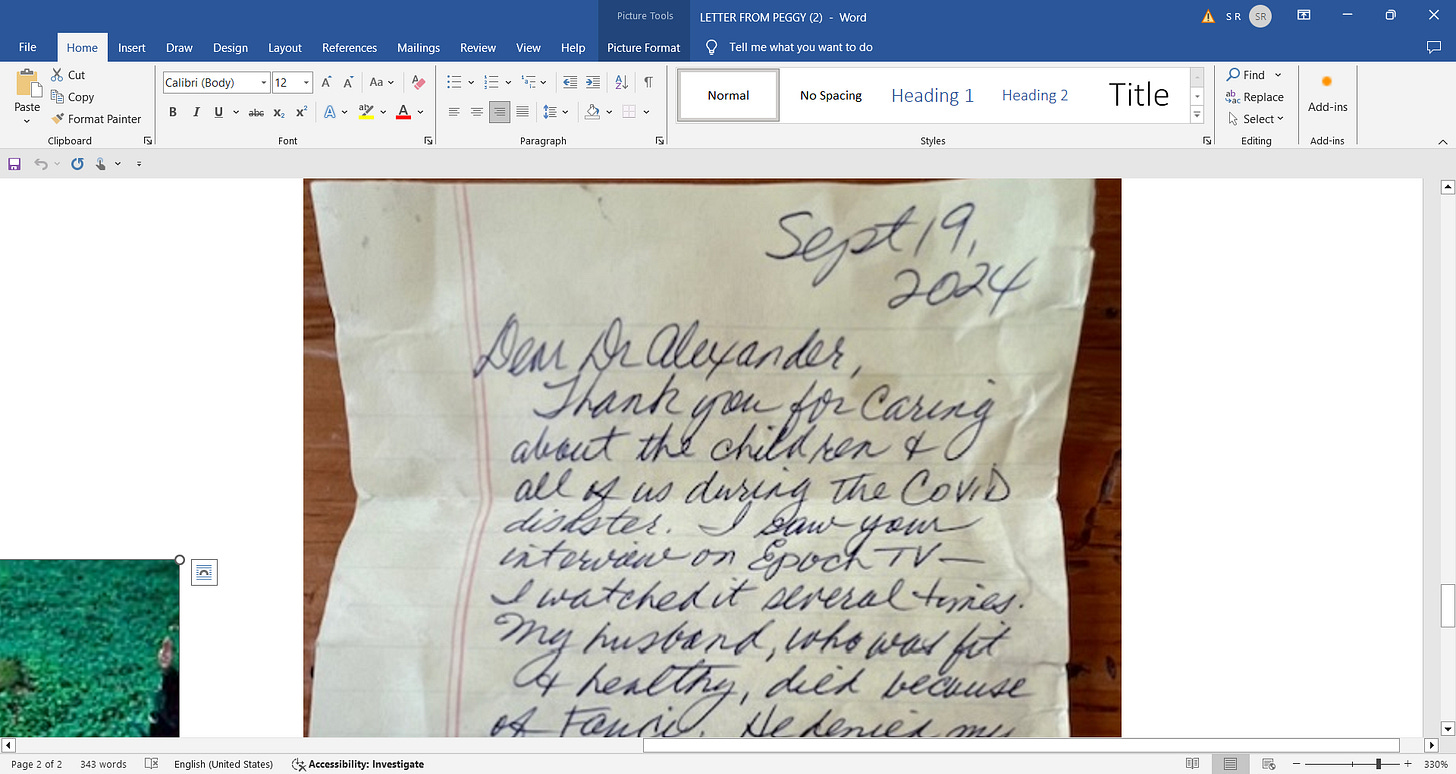 Picture Tools
LETTER FROM PEGGY (2) - Word
S R
SR
File Home Insert Draw Design Layout References Mailings Review View Help Picture Format Tell me what you want to do
Paste
Cut
Copy
Format Painter
Clipboard
Calibri (Body) 12 Aa
B I U abc x₂ x² A A
Font
Paragraph
Normal
No Spacing
Heading 1
Heading 2
Title
Styles
Find
Replace
Select
Editing
Add-ins
Add-ins
Sept 19,
2024
Dear Dr Alexander,
Thank you for caring
about the children &
all of us during the COVID
disaster. I saw your
interview on Epoch TV—
I watched it several times.
My husband, who was fit
& healthy, died because
of Fauci. He denied my
Page 2 of 2 343 words English (United States) Accessibility: Investigate 330%